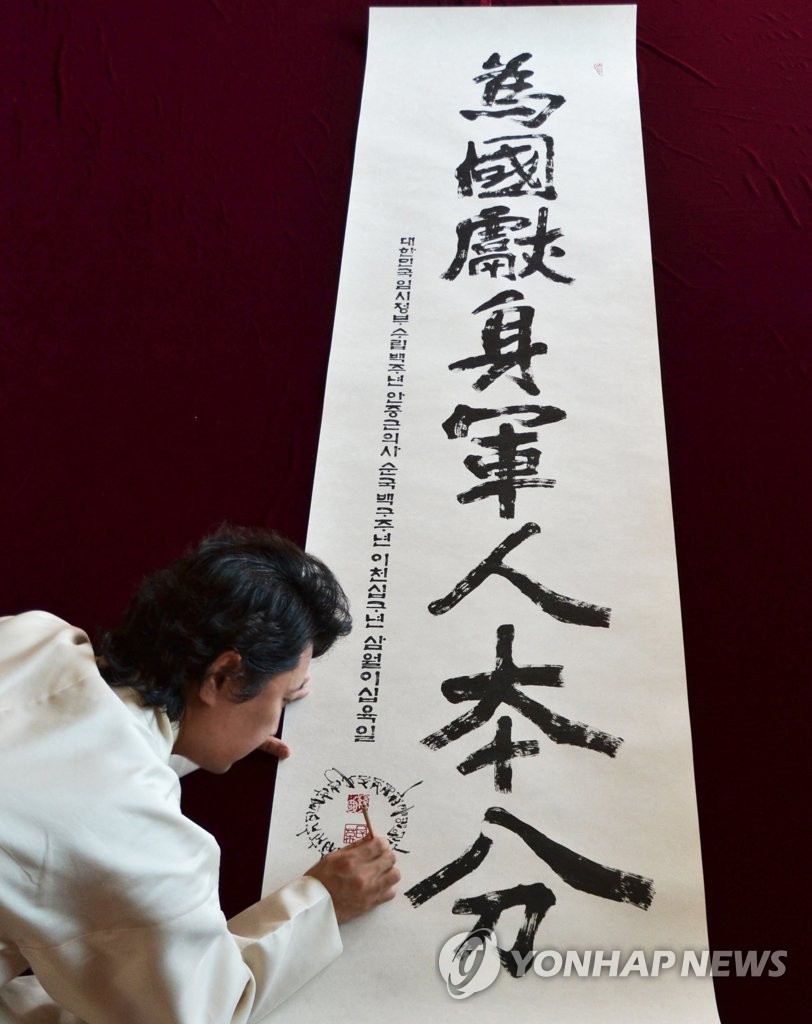 為國獻身軍人本分
대한민국임시정부수립백주년 안중근의사 순국 백구주년 이천십구년 삼월이십육일
YONHAP NEWS